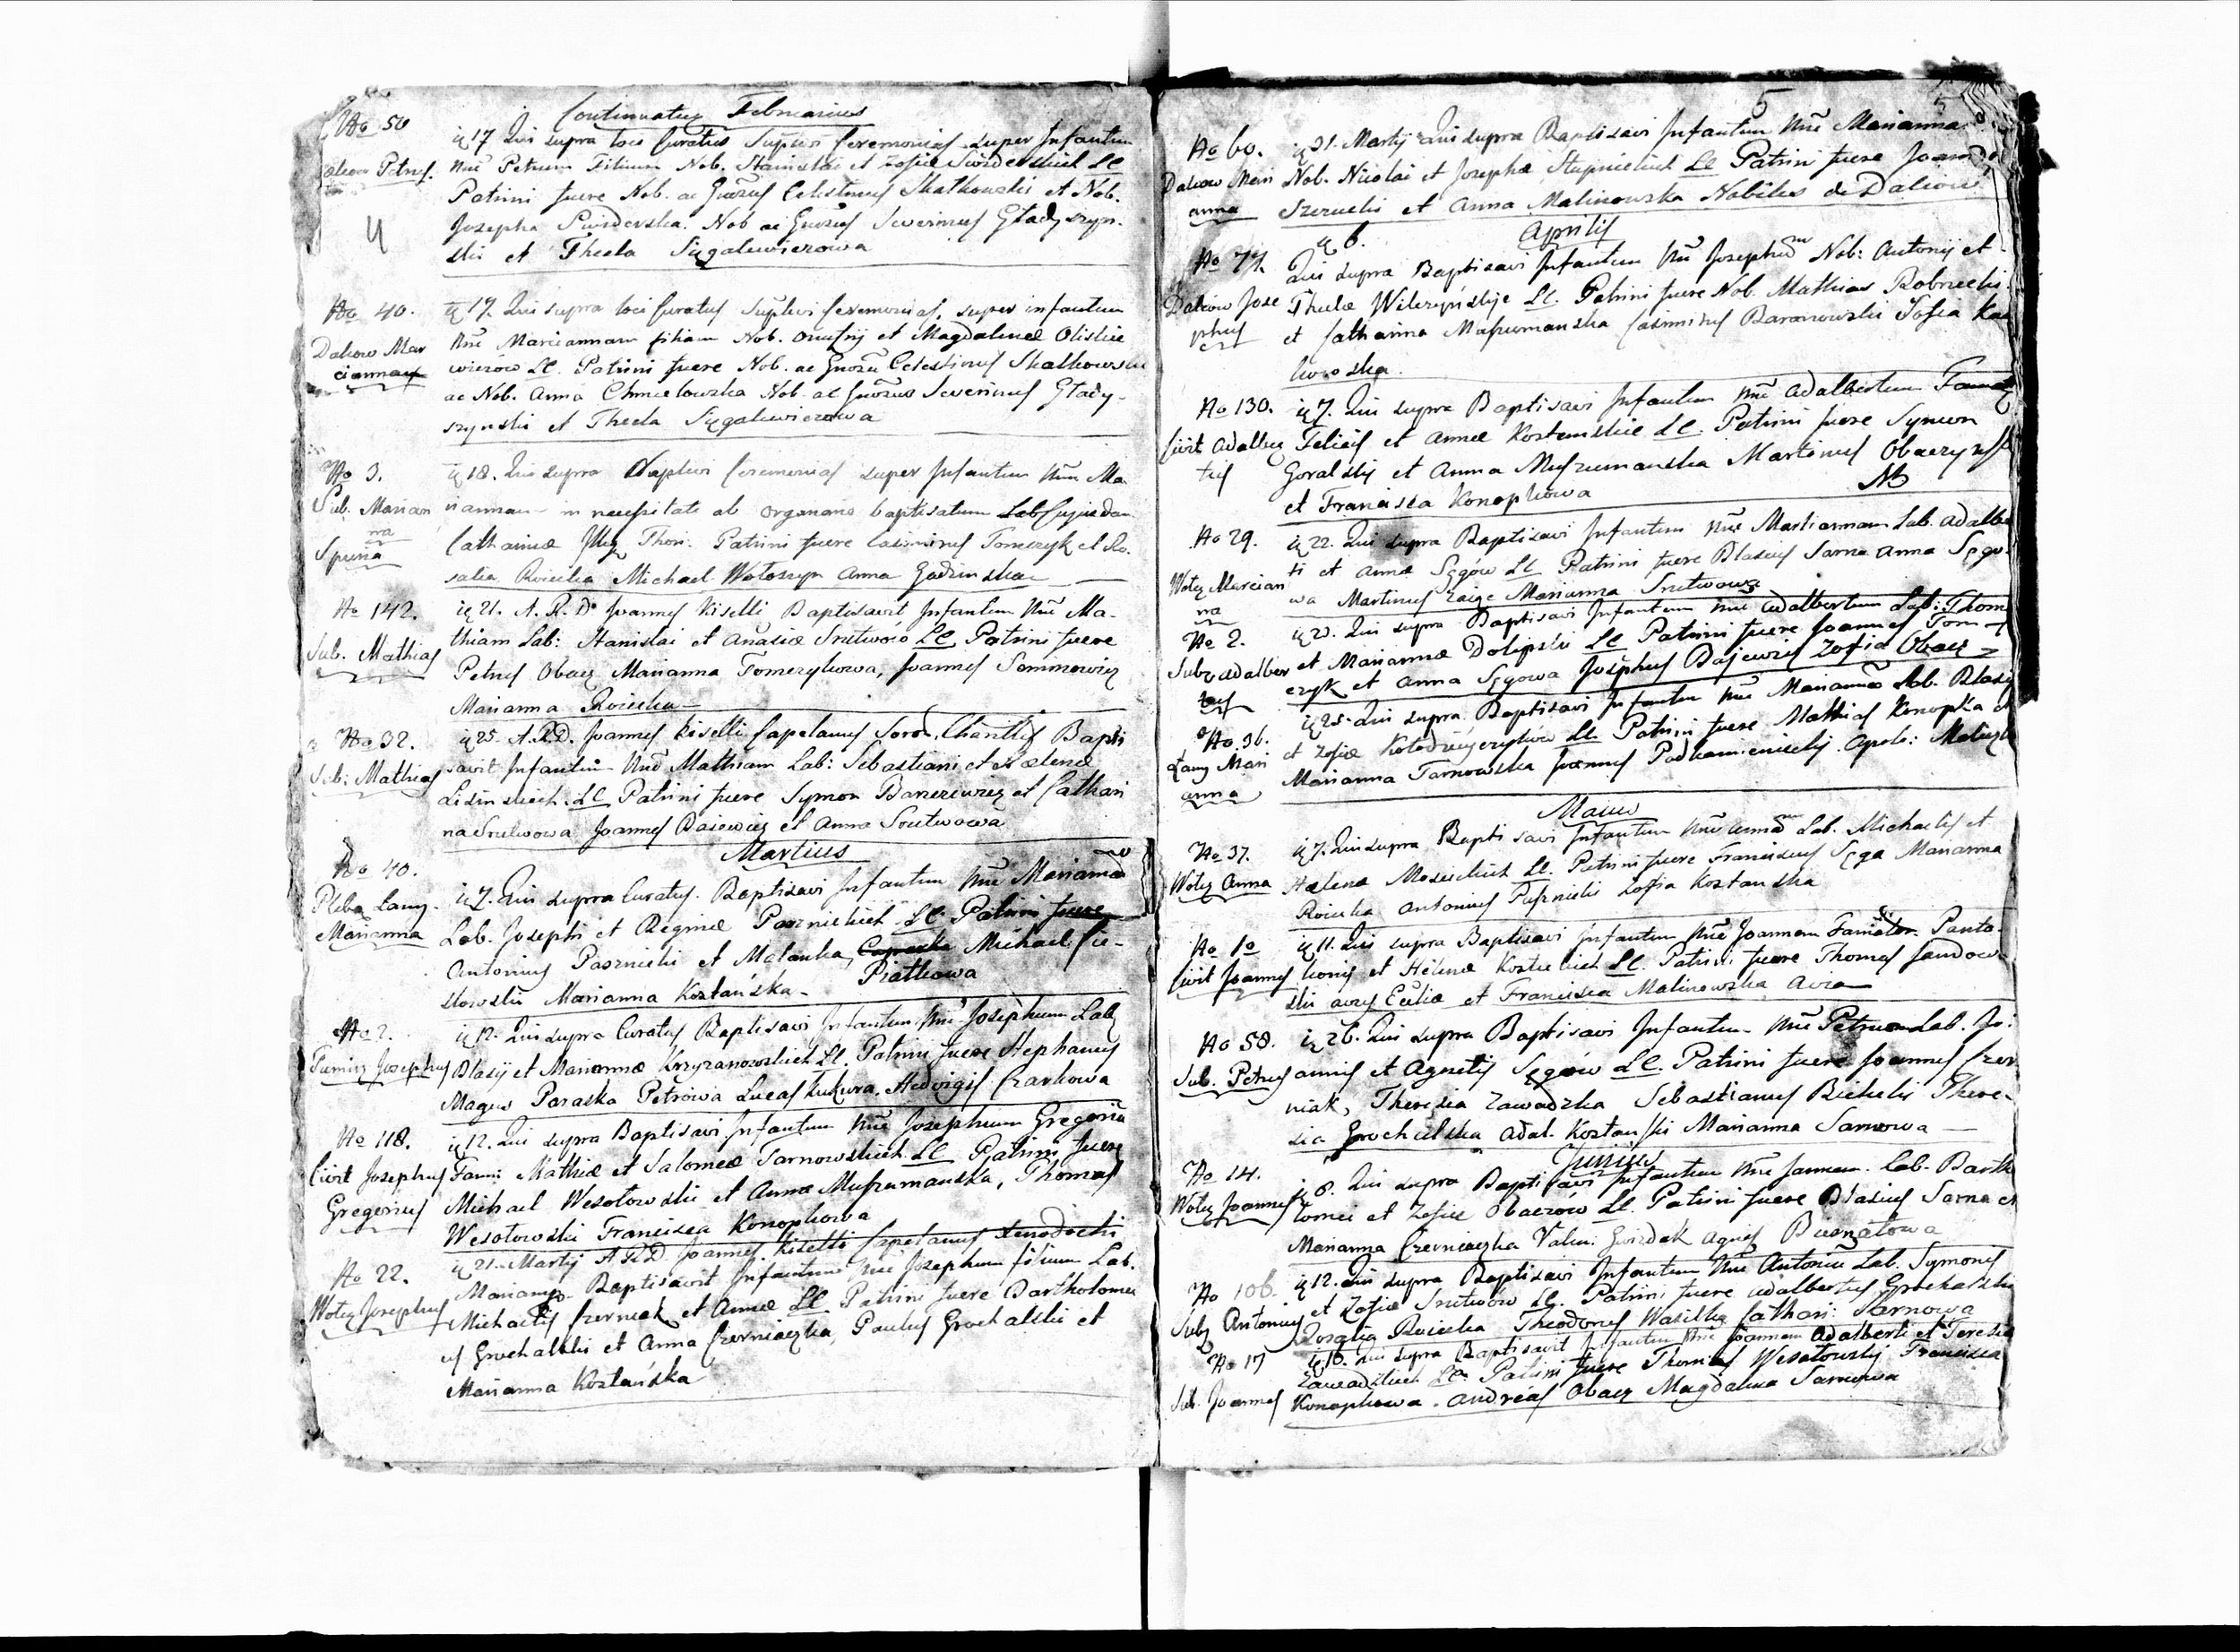 Continuatur Februarius
No 50
Petrus
4
ię 17. Qui supra loci Curatus Suplevi Ceremonias super Infantem
Nne Petrum Filium Nob. Stanislai et Zofiæ Swiderskich LC
Patrini fuere Nob. ac Gnosus Celestinus Skatkowski et Nob.
Josepha Swiderska. Nob ac Gnosus Severinus Gładyszyn-
ski et Thecla Sęgalewiczowa
No 40.
Daliow Mar
cianna
ię 17. Qui supra loci Curatus Suplevi Ceremonias, super infantem
Nne Mariannam filiam Nob. Onufrij et Magdalenæ
LC. Patrini fuere Nob. ac Gnosus Celestinus Skatkowski
ac Nob. Anna Chmielowska Nob. ac Gnosus Severinus Glady-
szynski et Thecla Sęgalewiczowa
No 3.
Sub. Marian
na
Spuria
ię 18. Qui supra Suplevi Ceremonias super Infantem Nne Ma-
riannam in necessitate ab Organario baptisatum Lab Cujusdam
Catharinæ Thori. Patrini fuere Casimirus Tomczyk et Ro-
salia Roicka Michael Wołoszyn Anna
No 142.
Sub. Mathias
ię 21. A. R. D. Joannes Kiselli Baptisavit Infantem Nne Ma-
thiam Lab: Stanislai et Anasiæ Snitwów LC Patrini fuere
Petrus Obacz Marianna Tomczykowa, Joannes Sammowicz
Marianna Roicka
No 32.
Sub: Mathias
ię 25. A.R.D. Joannes Kiselli Capelanus Soror. Charitis Bapti
savit Infantem Nne Mathiam Lab: Sebastiani et Helenæ
LC Patrini fuere Symon Banezewicz et Cathari
na Snitwowa Joannes Basiewicz et Anna Snitwowa
Martius
No 40.
Pleba Lany-
Marianna
ię 7. Qui supra Curatus. Baptisavi Infantem Nne Mariannã
Lab. Josephi et Reginæ Pasznickich LC Patrini fuere
Antonius Pasznicki et Malanka, Michael Cie-
slowski Marianna Kostańska - Piatkowa
No 2.
Josephus
ię 12. Qui supra Curatus Baptisavi Infantem Nne Josephum Lab
Blasij et Mariannæ Krzyzanowskich LC. Patrini fuere Stephanus
Magus Paraska Petrowa Lucas Kukura. Hedvigis Czarkowa
No 118.
Civit Josephus
Gregorius
ię 12. Qui supra Baptisavi Infantem Nne Josephum Gregoriũ
Fam: Mathiæ et Salomeæ Tarnowskich LC Patrini fuere
Michael Wesołowski et Anna Muszumanska, Thomas
Wesołowski Francisca Konopkowa
No 22.
Woley Josephus
ię 21. Martij A.R.D. Joannes Kiselli Capelanus Xenodochi
Baptisavit Infantem Nne Josephum filium Lab.
Michaelis Czerniak et Annæ LC Patrini fuere Bartholome
us Grochalski et Anna Czerniaczka, Paulus Grochalski et
Marianna Kostańska
5
No 60.
Daliow Mari
anna
ię 21. Martij Qui supra Baptisavi Infantem Nne Marianna
Nob. Nicolai et Josephæ Stupnickich LC Patrini fuere
Szeruchi et Anna Malinowska Nobiles de Daliow
Aprilis
No 77.
Daliow Jose
phus
ię 6.
Qui supra Baptisavi Infantem Nne Josephum Nob: Antonij et
Theclæ LC. Patrini fuere Nob. Mathias
et Catharina Maszumanska Casimirus Baranowski Sofia Kac
kowska.
No 130.
Civit Adalber
tus
ię 7. Qui supra Baptisavi Infantem Nne Adalbertum
Felicis et Annæ Kostanskie LC. Patrini fuere Symon
Goralski et Anna Muszumanska Martinus
et Francisca Konopkowa
No 29.
Woley Marcian
na
ię 22. Qui supra Baptisavi Infantem Nne Martiannam Lab. Adalber
ti et Annæ Sęgów LC Patrini fuere Blasius Sarna Anna Sęgo-
wa Martinus Marianna Snitwowa
No 2.
Sub Adalber
tus
ię 23. Qui supra Baptisavi Infantem Nne Adalbertum Lab: Thom
et Mariannæ LC Patrini fuere Joannes Tom-
czyk et Anna Sęgowa Josephus Basiewicz Zofia Obacz
No 36.
Łany Mari
anna
ię 25. Qui supra Baptisavi Infantem Nne Mariannã Lab. Blasij
et Zofiæ LC Patrini fuere Mathias Konopka et
Marianna Tarnowska Joannes Podkamieniecki Apol:
Maius
No 37.
Woley Anna
ię 7. Qui supra Baptisavi Infantem Nne Annam Lab. Michaelis et
Helenæ LC. Patrini fuere Franciscus Sęga Marianna
Roicka Antonius Paszniski Zofia Kostanska
No 10
Civit Joannes
ię 11. Qui supra Baptisavi Infantem Nne Joannem Famater. Panta-
leonis et Helenæ Kostuckich LC. Patrini fuere Thomas Sandow-
ski et Francisca Malinowska
No 58.
Sub. Petrus
ię 26. Qui supra Baptisavi Infantem Nne Petrum Lab. Jo-
annis et Agnetis Sęgów LC. Patrini fuere Joannes Czer
niak, Theresia Zawadzka Sebastianus Bichelis There-
sia Grochalska Adal. Kostański Marianna Sarnowa
Junius
No 14.
Woley Joannes
ię 8. Qui supra Baptisavi Infantem Nne Joannem. Lab. Bartho
lomei et Zofiæ Obaczów LC. Patrini fuere Blasius Sarna et
Marianna Czerniaczka Valen: Gwizdak Agnes Biernatowa
No 106.
Sub Antonius
ię 12. Qui supra Baptisavi Infantem Nne Antoniũ Lab. Symonis
et Zofiæ Snitwów LC. Patrini fuere Adalbertus Grochalski
Rosalia Roicka Theodorus Wasilko Cathari: Sarnowa
No 17
Sub. Joannes
ię 16. Qui supra Baptisavit Infantem Nne Joannem Adalberti et Teresiæ
Zawadzkich LC. Patrini fuere Thomas Wesołowski Francisca
Konopkowa. Andreas Obacz Magdalena Sarnowa